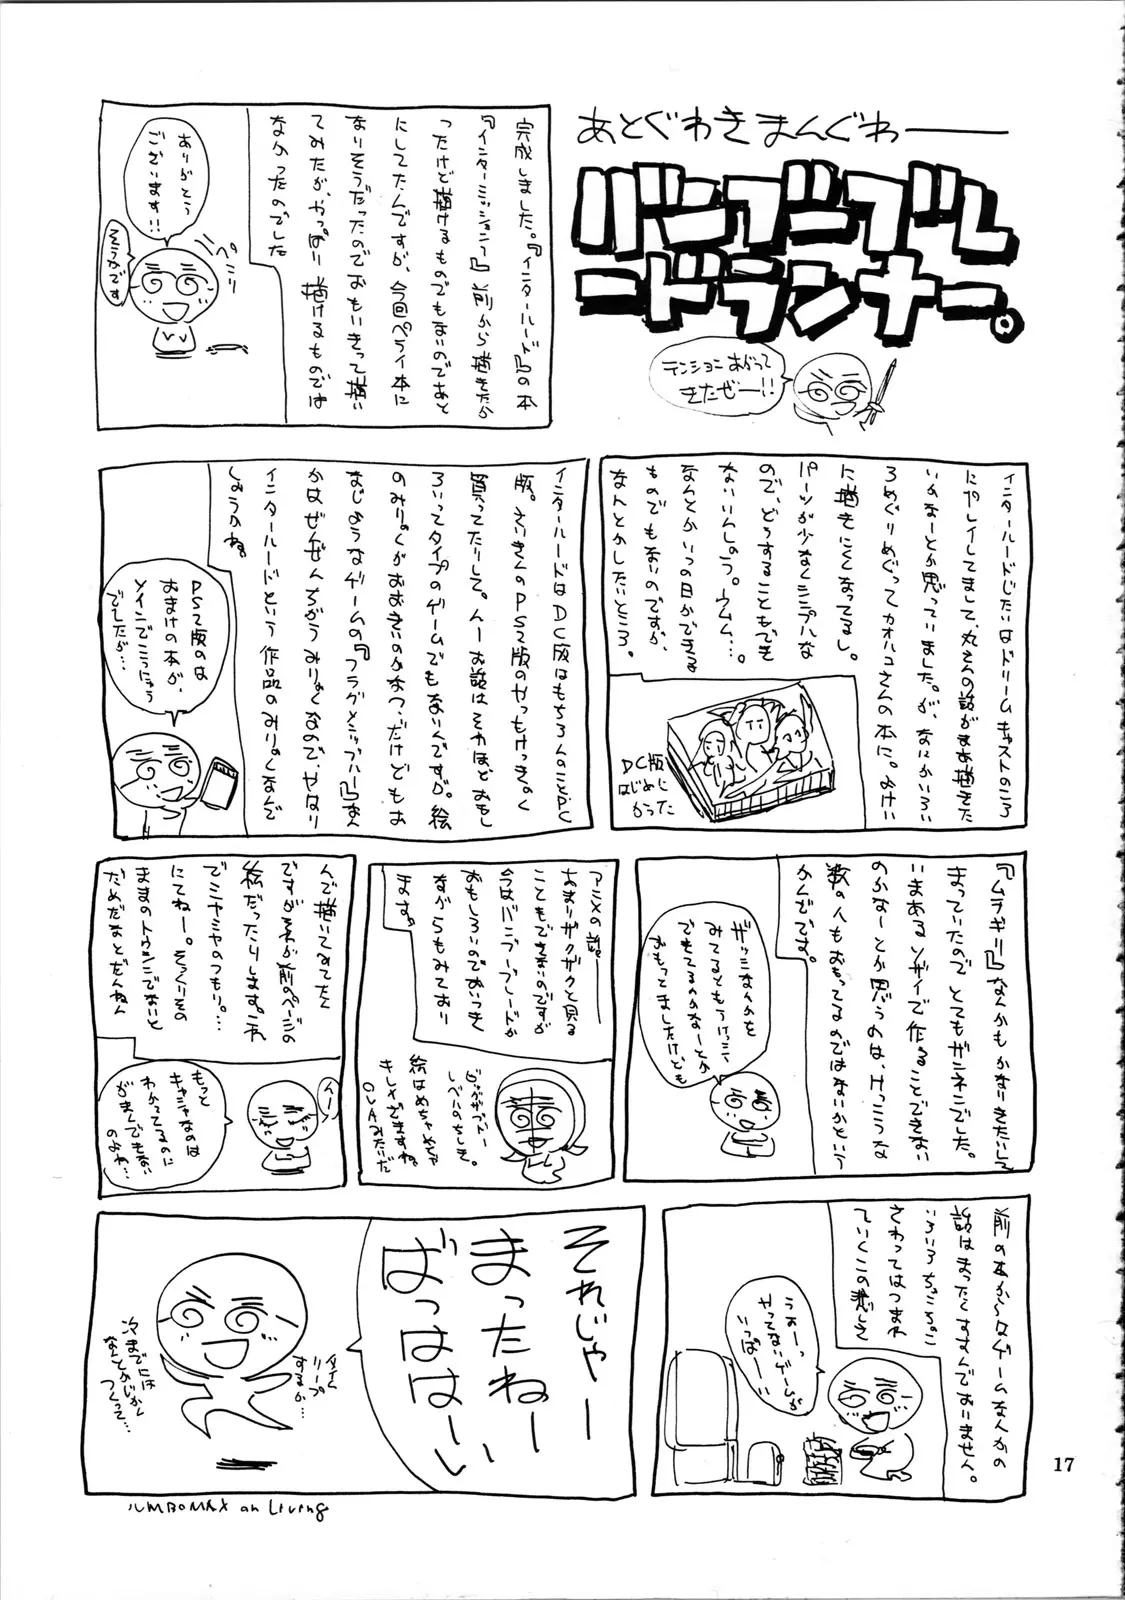 あとぐわきまんぐわーーー
バンブーブレ
ードランナー。
テンションあがって
きたぜー!!
完成しました。『インタールード』の本
『インターミッション』前から描きたか
ったけど描けるものでもないのであと
にしてたんですが、今回ペライ本に
なりそうだったのでおもいきって描い
てみたが、やっぱり描けるものでは
なかったのでした
ありがとう
ございます!!
ぺこり
そうかです
インタールードじたいはドリームキャストのころ
にプレイしてまして、丸さんの話がまあ描きた
いかなーとか思っていました。が、なにかいろい
ろめぐりめぐってカオルコさんの本に。よけい
に描きにくくなってるし。
パーツが少なくシンプルな
ので、どうすることもでき
ないいんしょう。ウムム…。
なんとかいつの日かできる
ものでもないのですが、
なんとかしたいところ。
DC版
はじめに
かった
インタールードはDC版はもちろんのことPC
版。さいきんのPS2版のやつもけっきょく
買ってたりして。んー お話はそれほどおもし
ろいってタイプのゲームでもないんですが。絵
のみりょくがおおきいのかなっ、だけどもお
なじようなゲームの『フラグメンツブルー』なん
かはぜんぜんちがうみりょくなので、やはり
インタールードという作品のみりょくなんで
しょうかね。
PS2版のは
おまけの本が、
ツインでこうにゅう
でしたが…
『ムラギリ』なんかもかなりきたいして
まっていたので とてもザンネンでした。
いまあるソザイで作ることできない
のかなーとか思うのは、けっこうな
数の人もおもってるのではないかという
かんじです。
ギャッこなんかを
みてるともうけっこう
できてるのかなーとか
おもってましたけども
アニメの話ー
あまりザクザクと見る
こともできないのですが
今はバンブーブレードが
おもしろいのでおいつき
ながらもみており
ます。
絵はめちゃめちゃ
キレイですね。
OVAみたいだ
んで描いてみてたん
ですがそれが前のページの
絵だったりします。これ
でミヤミヤのつもり。…
にてねー。そっくりその
ままのトウシンでないと
だめだなとだんねん
んー
もっと
キャシャなのは
わかってるのに
がまんできない
のよね…
前の本からはゲームなんかの
話はまったくすすんでおりません。
いろいろちょこちょこ
さわってはつまれ
ていくこの悲しさ
うおーっ
やってないゲームが
いっぱーい
それじゃー
まったねー
ばっははーい
タイム
リープ
するか…
次までには
なんとかじかん
つくって…
ルMBOMAX an Living
17